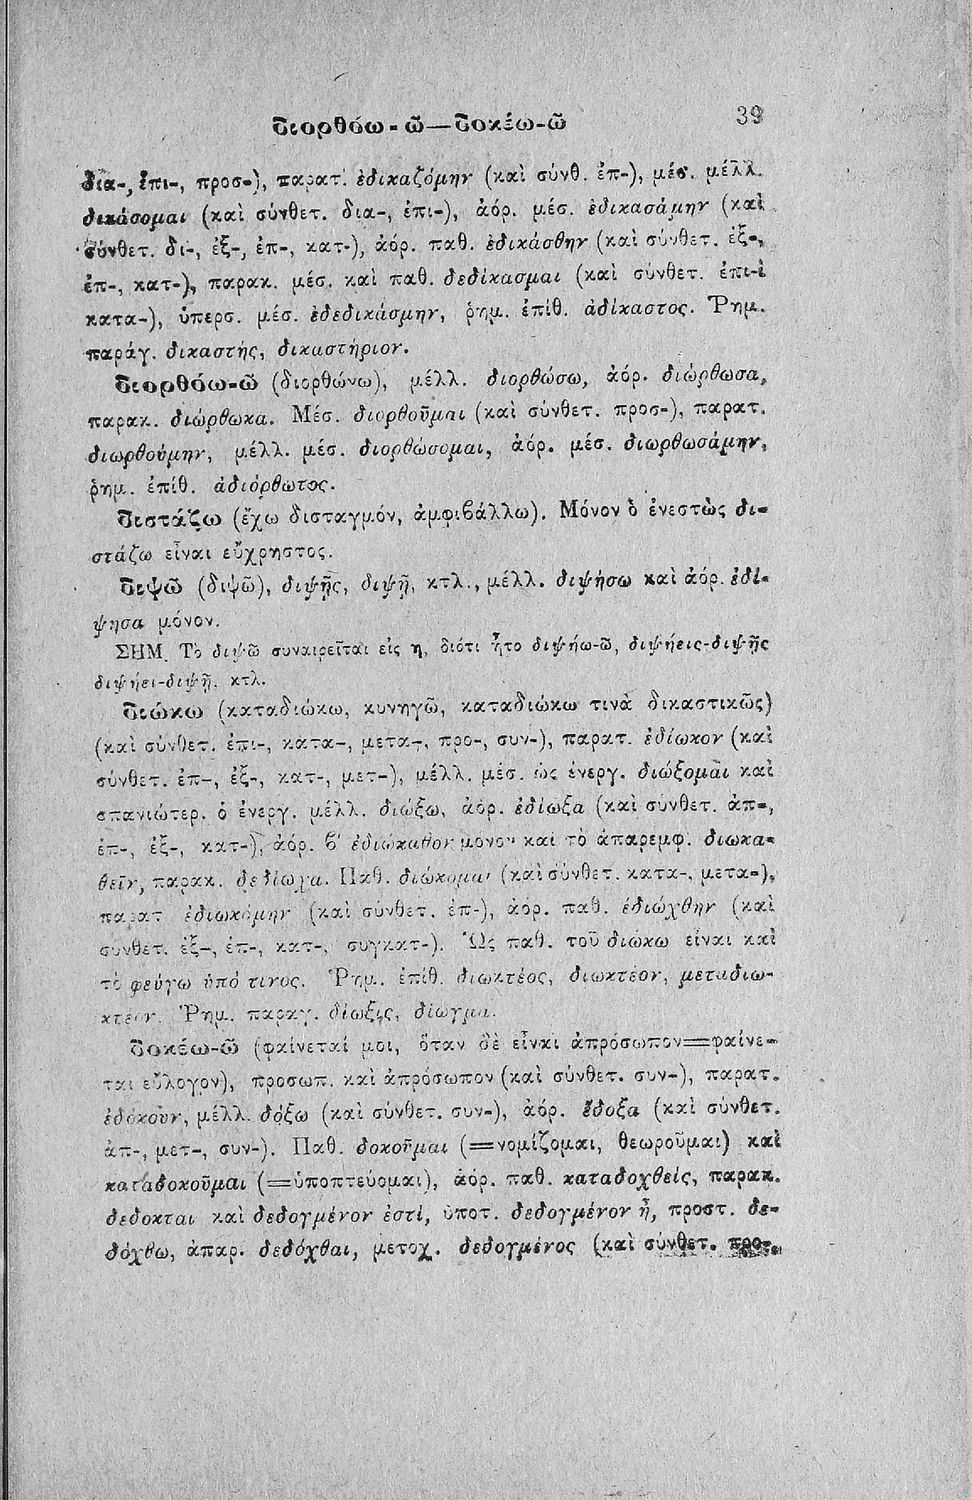 διορθόω-ῶ—δοκέω-ῶ 39
δια-, ἐπι-, προσ-), παρατ. ἐδικαζόμην (καὶ σύνθ. ἐπ-), μέσ. μέλλ.
δικάσομαι (καὶ σύνθετ. δια-, ἐπι-), ἀόρ. μέσ. ἐδικασάμην (καὶ
σύνθετ. δι-, ἐξ-, ἐπ-, κατ-), ἀόρ. παθ. ἐδικάσθην (καὶ σύνθετ. ἐξ-,
ἐπ-, κατ-), παρακ. μέσ. καὶ παθ. δεδίκασμαι (καὶ σύνθετ. ἐπι-
κατα-), ὑπερσ. μέσ. ἐδεδικάσμην, ῥημ. ἐπίθ. ἀδίκαστος. Ῥημ.
παράγ. δικαστής, δικαστήριον.
διορθόω-ῶ (διορθώνω), μέλλ. διορθώσω, ἀόρ. διώρθωσα,
παρακ. διώρθωκα. Μέσ. διορθοῦμαι (καὶ σύνθετ. προσ-), παρατ.
διωρθούμην, μέλλ. μέσ. διορθώσομαι, ἀόρ. μέσ. διωρθωσάμην,
ῥημ. ἐπίθ. ἀδιόρθωτος.
διστάζω (ἔχω δισταγμόν, ἀμφιβάλλω). Μόνον ὁ ἐνεστὼς δι-
στάζω εἶναι εὔχρηστος.
διψῶ (διψῶ), διψῇς, διψῇ, κτλ., μέλλ. διψήσω καὶ ἀόρ. ἐδί-
ψησα μόνον.
ΣΗΜ. Τὸ διψῶ συναιρεῖται εἰς η, διότι ἦτο διψήω-ῶ, διψήεις-διψῇς
διψήει-διψῇ, κτλ.
διώκω (καταδιώκω, κυνηγῶ, καταδιώκω τινὰ δικαστικῶς)
(καὶ σύνθετ. ἐπι-, κατα-, μετα-, προ-, συν-), παρατ. ἐδίωκον (καὶ
σύνθετ. ἐπ-, ἐξ-, κατ-, μετ-), μέλλ. μέσ. ὡς ἐνεργ. διώξομαι καὶ
σπανιώτερ. ὁ ἐνεργ. μέλλ. διώξω, ἀόρ. ἐδίωξα (καὶ σύνθετ. ἀπ-,
ἐπ-, ἐξ-, κατ-), ἀόρ. β' ἐδιώκαθον μόνον καὶ τὸ ἀπαρεμφ. διωκα-
θεῖν, παρακ. δεδίωχα. Παθ. διώκομαι (καὶ σύνθετ. κατα-, μετα-),
παρατ. ἐδιωκόμην (καὶ σύνθετ. ἐπ-), ἀόρ. παθ. ἐδιώχθην (καὶ
σύνθετ. ἐξ-, ἐπ-, κατ-, συγκατ-). Ὡς παθ. τοῦ διώκω εἶναι καὶ
τὸ φεύγω ὑπό τινος. Ῥημ. ἐπίθ. διωκτέος, διωκτέον, μεταδιω-
κτέον. Ῥημ. παραγ. δίωξις, δίωγμα.
δοκέω-ῶ (φαίνεταί μοι, ὅταν δὲ εἶναι ἀπρόσωπον=φαίνε-
ται εὔλογον), προσωπ. καὶ ἀπρόσωπον (καὶ σύνθετ. συν-), παρατ.
ἐδόκουν, μέλλ. δόξω (καὶ σύνθετ. συν-), ἀόρ. ἔδοξα (καὶ σύνθετ.
ἀπ-, μετ-, συν-). Παθ. δοκοῦμαι (=νομίζομαι, θεωροῦμαι) καὶ
καταδοκοῦμαι (=ὑποπτεύομαι), ἀόρ. παθ. καταδοχθείς, παρακ.
δέδοκται καὶ δεδογμένον ἐστί, ὑποτ. δεδογμένον ᾖ, προστ. δε-
δόχθω, ἀπαρ. δεδόχθαι, μετοχ. δεδογμένος (καὶ σύνθετ. προ-,